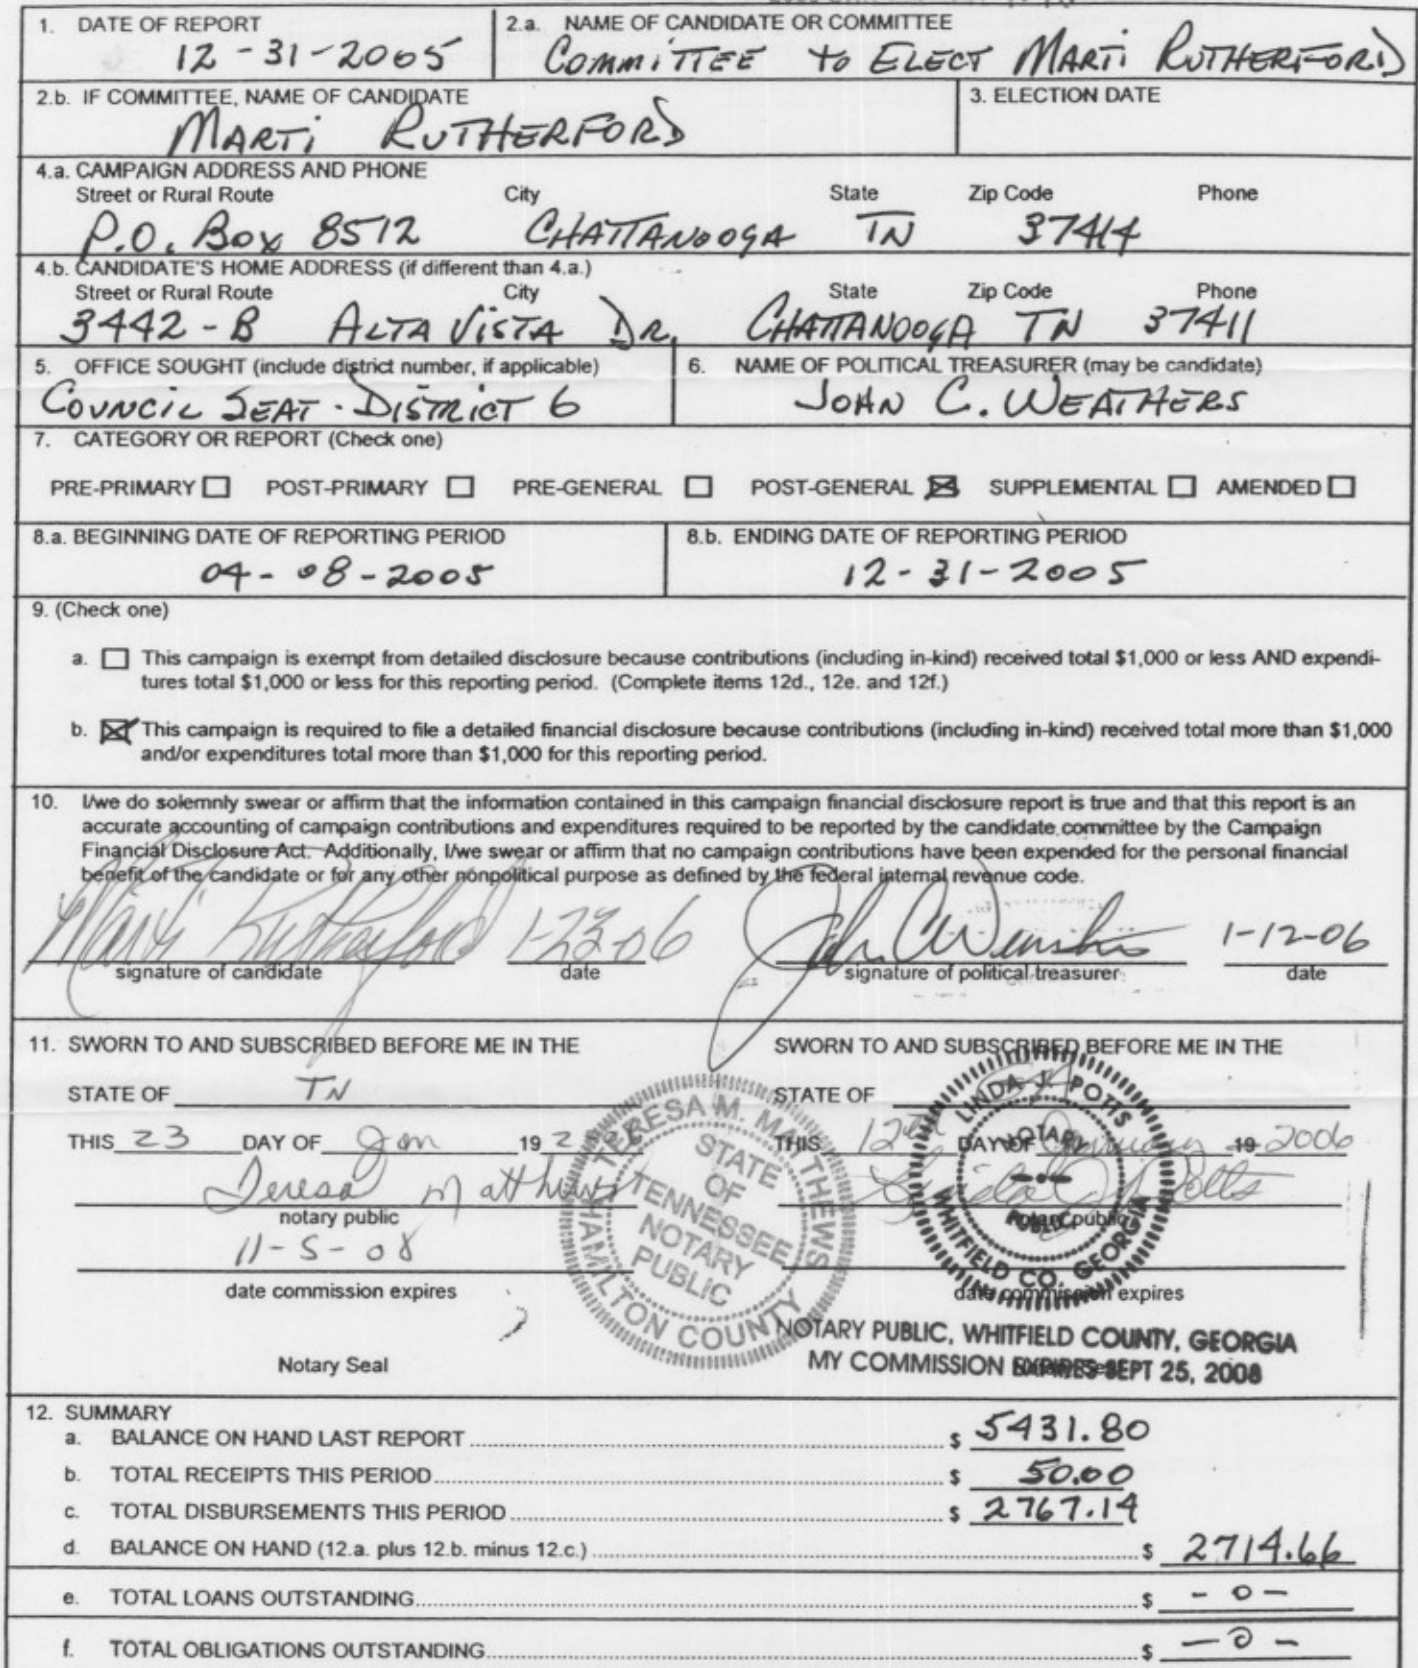 1. DATE OF REPORT
12-31-2005
2.a. NAME OF CANDIDATE OR COMMITTEE
COMMITTEE to ELECT MARTI RUTHERFORD
2.b. IF COMMITTEE, NAME OF CANDIDATE
MARTI RUTHERFORD
3. ELECTION DATE
4.a. CAMPAIGN ADDRESS AND PHONE
Street or Rural Route City State Zip Code Phone
P.O. Box 8512 CHATTANOOGA TN 37414
4.b. CANDIDATE'S HOME ADDRESS (if different than 4.a.)
Street or Rural Route City State Zip Code Phone
3442-B ALTA VISTA DR. CHATTANOOGA TN 37411
5. OFFICE SOUGHT (include district number, if applicable)
COUNCIL SEAT - DISTRICT 6
6. NAME OF POLITICAL TREASURER (may be candidate)
JOHN C. WEATHERS
7. CATEGORY OR REPORT (Check one)
PRE-PRIMARY ☐ POST-PRIMARY ☐ PRE-GENERAL ☐ POST-GENERAL ☒ SUPPLEMENTAL ☐ AMENDED ☐
8.a. BEGINNING DATE OF REPORTING PERIOD
04-08-2005
8.b. ENDING DATE OF REPORTING PERIOD
12-31-2005
9. (Check one)
a. ☐ This campaign is exempt from detailed disclosure because contributions (including in-kind) received total $1,000 or less AND expendi-
tures total $1,000 or less for this reporting period. (Complete items 12d., 12e. and 12f.)
b. ☒ This campaign is required to file a detailed financial disclosure because contributions (including in-kind) received total more than $1,000
and/or expenditures total more than $1,000 for this reporting period.
10. I/we do solemnly swear or affirm that the information contained in this campaign financial disclosure report is true and that this report is an
accurate accounting of campaign contributions and expenditures required to be reported by the candidate committee by the Campaign
Financial Disclosure Act. Additionally, I/we swear or affirm that no campaign contributions have been expended for the personal financial
benefit of the candidate or for any other nonpolitical purpose as defined by the federal internal revenue code.
Marti Rutherford 1-23-06
signature of candidate date
1-12-06
signature of political treasurer date
11. SWORN TO AND SUBSCRIBED BEFORE ME IN THE
STATE OF TN
THIS 23 DAY OF Jan 19
Teresa Matthews
notary public
11-5-08
date commission expires
Notary Seal
TERESA M. MATTHEWS
STATE
OF
TENNESSEE
NOTARY
PUBLIC
HAMILTON COUNTY
SWORN TO AND SUBSCRIBED BEFORE ME IN THE
STATE OF
THIS 12th DAY OF January 19 2006
Linda J Potts
notary public
date commission expires
LINDA J. POTTS
NOTARY
PUBLIC
WHITFIELD CO. GEORGIA
NOTARY PUBLIC, WHITFIELD COUNTY, GEORGIA
MY COMMISSION EXPIRES SEPT 25, 2008
12. SUMMARY
a. BALANCE ON HAND LAST REPORT $ 5431.80
b. TOTAL RECEIPTS THIS PERIOD $ 50.00
c. TOTAL DISBURSEMENTS THIS PERIOD $ 2767.14
d. BALANCE ON HAND (12.a. plus 12.b. minus 12.c.) $ 2714.66
e. TOTAL LOANS OUTSTANDING $ -0-
f. TOTAL OBLIGATIONS OUTSTANDING $ -0-